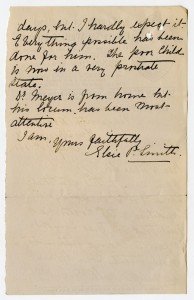 days, but I hardly expect it
Everything possible has been
done for him. The poor Child
is now in a very prostrate
state.
Dr Meyer is from home but
his locum has been most
attentive
I am. Yours faithfully
Elsie P. Smith.